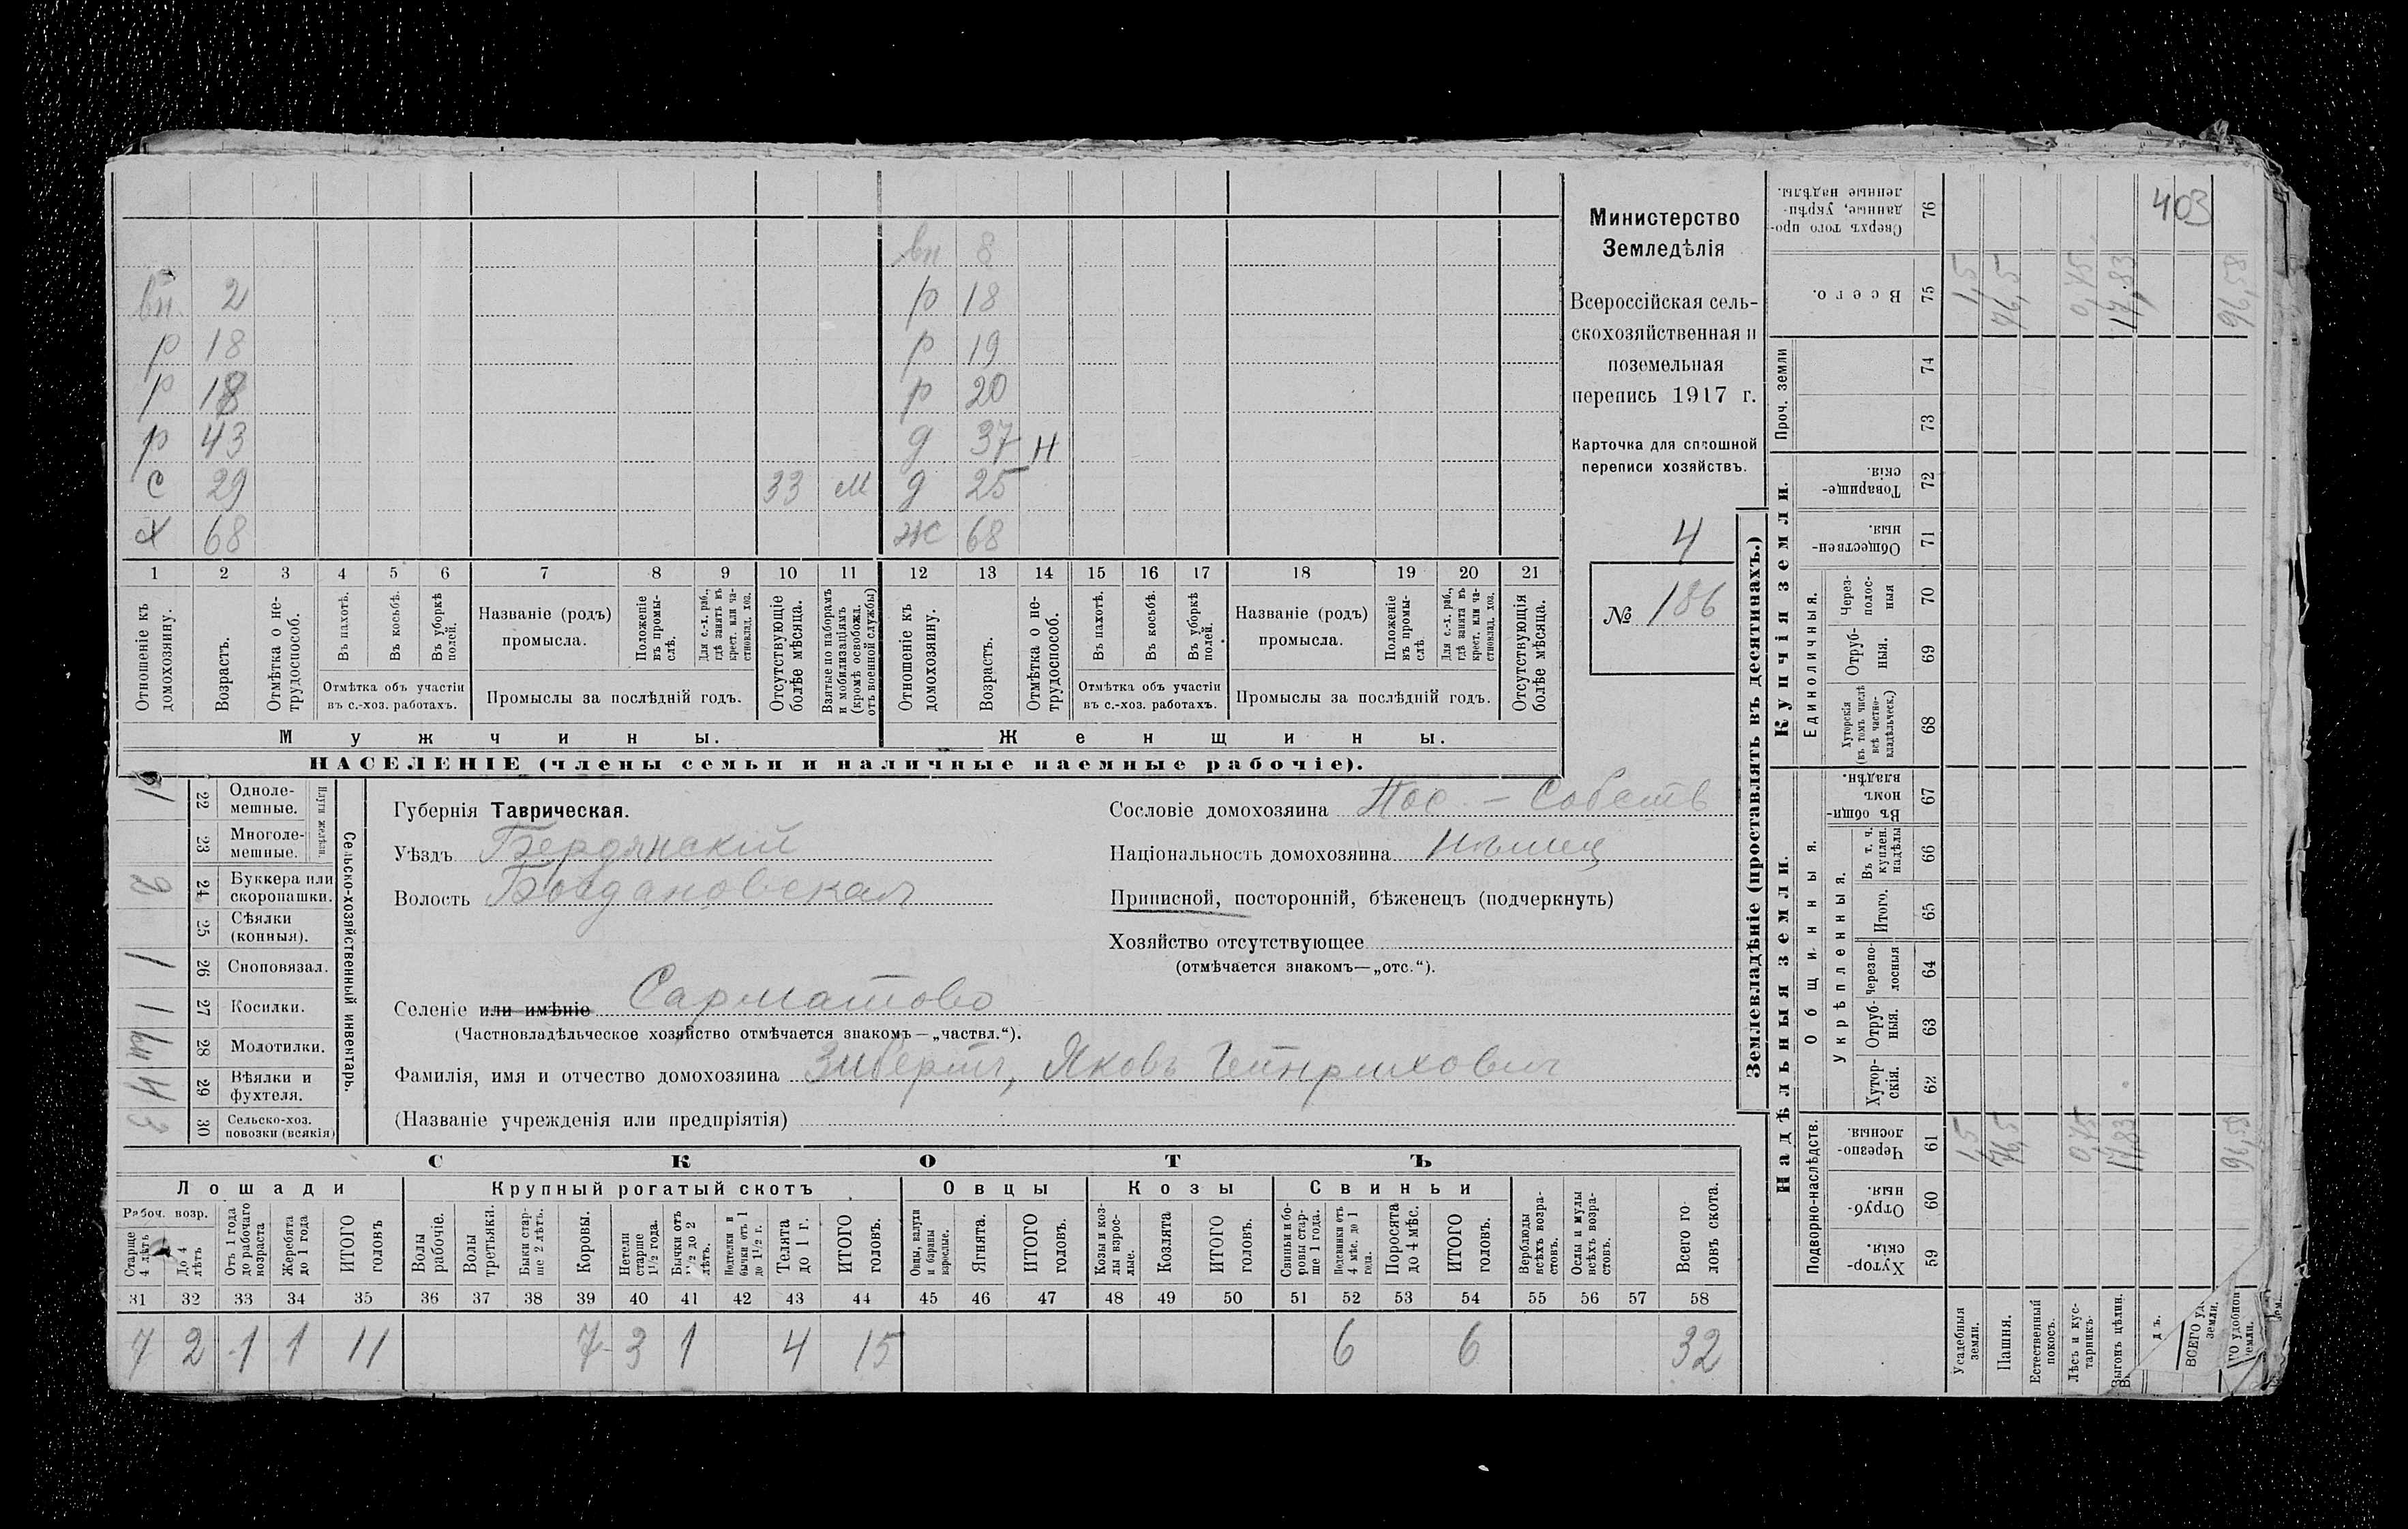 403
вн 8
вн. 2 р 18
р 18 р 19
р 18 р 20
р 43 д 37 н
с 29 33 м д 25
х 68 ж 68
1 2 3 4 5 6 7 8 9 10 11 12 13 14 15 16 17 18 19 20 21
Отношеніе къ домохозяину.
Возрастъ.
Отмѣтка о не-
трудоспособ.
Въ пахотѣ.
Въ косьбѣ.
Въ уборкѣ полей.
Отмѣтка объ участіи
въ с.-хоз. работахъ.
Названіе (родъ)
промысла.
Положеніе въ промы-
слѣ.
Для с.-х. раб., гдѣ занятъ въ крест. или ча-
стновлад. хоз.
Промыслы за послѣдній годъ.
Отсутствующіе болѣе мѣсяца.
Взятые по наборамъ и мобилизаціямъ (кромѣ освобожд. отъ военной службы)
Отношеніе къ домохозяину.
Возрастъ.
Отмѣтка о не-
трудоспособ.
Въ пахотѣ.
Въ косьбѣ.
Въ уборкѣ полей.
Отмѣтка объ участіи
въ с.-хоз. работахъ.
Названіе (родъ)
промысла.
Положеніе въ промы-
слѣ.
Для с.-х. раб., гдѣ занята въ крест. или ча-
стновлад. хоз.
Промыслы за послѣдній годъ.
Отсутствующія болѣе мѣсяца.
Мужчины. Женщины.
НАСЕЛЕНІЕ (члены семьи и наличные наемные рабочіе).
Министерство
Земледѣлія
Всероссійская сель-
скохозяйственная и
поземельная
перепись 1917 г.
Карточка для сплошной
переписи хозяйствъ.
4
№ 186
Сельско-хозяйственный инвентарь.
Плуги желѣзн.
22 Одноле-
мешные.
23 Многоле-
мешные.
2 24 Буккера или
скоропашки.
25 Сѣялки
(конныя).
1 26 Сноповязал.
1 27 Косилки.
28 Молотилки.
29 Вѣялки и
фухтеля.
3 30 Сельско-хоз.
повозки (всякія)
Губернія Таврическая.
Уѣздъ Бердянскій
Волость Богдановская
Селеніе или имѣніе Сарматово
(Частновладѣльческое хозяйство отмѣчается знакомъ—„частвл.“).
Фамилія, имя и отчество домохозяина Зиберть, Яковъ Гейнриховичъ
(Названіе учрежденія или предпріятія)
Сословіе домохозяина Пос. – Собств
Національность домохозяина Нѣмец
Приписной, посторонній, бѣженецъ (подчеркнуть)
Хозяйство отсутствующее
(отмѣчается знакомъ—„отс.“).
СКОТЪ
Лошади Крупный рогатый скотъ Овцы Козы Свиньи
Рабоч. возр.
Старше 4 лѣтъ
До 4 лѣтъ
Отъ 1 года до рабочаго возраста
Жеребята до 1 года
ИТОГО головъ
Волы рабочіе.
Волы третьяки.
Быки стар-
ше 2 лѣтъ.
Коровы.
Нетели старше 1½ года.
Бычки отъ 1½ до 2 лѣтъ.
Нетелки и бычки отъ 1 до 1½ г.
Телята до 1 г.
ИТОГО головъ.
Овцы, валухи и бараны взрослые.
Ягнята.
ИТОГО головъ.
Козы и коз-
лы взрос-
лые.
Козлята
ИТОГО головъ.
Свиньи и бо-
ровы стар-
ше 1 года.
Подсвинки отъ 4 мѣс. до 1 года.
Поросята до 4 мѣс.
ИТОГО головъ.
Верблюды всѣхъ возра-
стовъ.
Ослы и мулы всѣхъ возра-
стовъ.
Всего го-
ловъ скота.
31 32 33 34 35 36 37 38 39 40 41 42 43 44 45 46 47 48 49 50 51 52 53 54 55 56 57 58
7 2 1 1 11 7 3 1 4 15 6 6 32
Землевладѣніе (проставлять въ десятинахъ.)
Купчія земли.
Надѣльныя земли.
Сверхъ того про-
данные, укрѣп-
ленные надѣлы. 76
Всего. 75 1,5 76,5 0,75 17,83 96,58
Проч. земли 74
73
Товарище-
скія. 72
Обществен-
ныя. 71
Единоличныя.
Через-
полос-
ныя 70
Отруб-
ныя. 69
Хуторскія (въ томъ числѣ всѣ частно-
владѣльческ.) 68
Общинныя.
Въ общин-
номъ владѣн. 67
Укрѣпленныя.
Въ т. ч. куплен. надѣлы 66
Итого. 65
Черезпо-
лосныя 64
Отруб-
ныя. 63
Хутор-
скія. 62
Подворно-наслѣдств.
Черезпо-
лосныя. 61 1,5 76,5 0,75 17,83 96,58
Отруб-
ныя. 60
Хутор-
скія. 59
Усадебныя земли.
Пашня.
Естественный покосъ.
Лѣсъ и кус-
тарникъ.
Выгонъ цѣлин.
ВСЕГО уд.
земли.